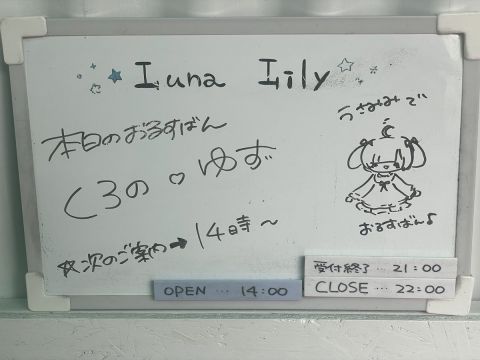 Luna Lily
本日のおるすばん
くろの♡ゆず
☆次のご案内→14時~
うさみみで
おるすばん♪
OPEN … 14:00
受付終了 … 21:00
CLOSE … 22:00